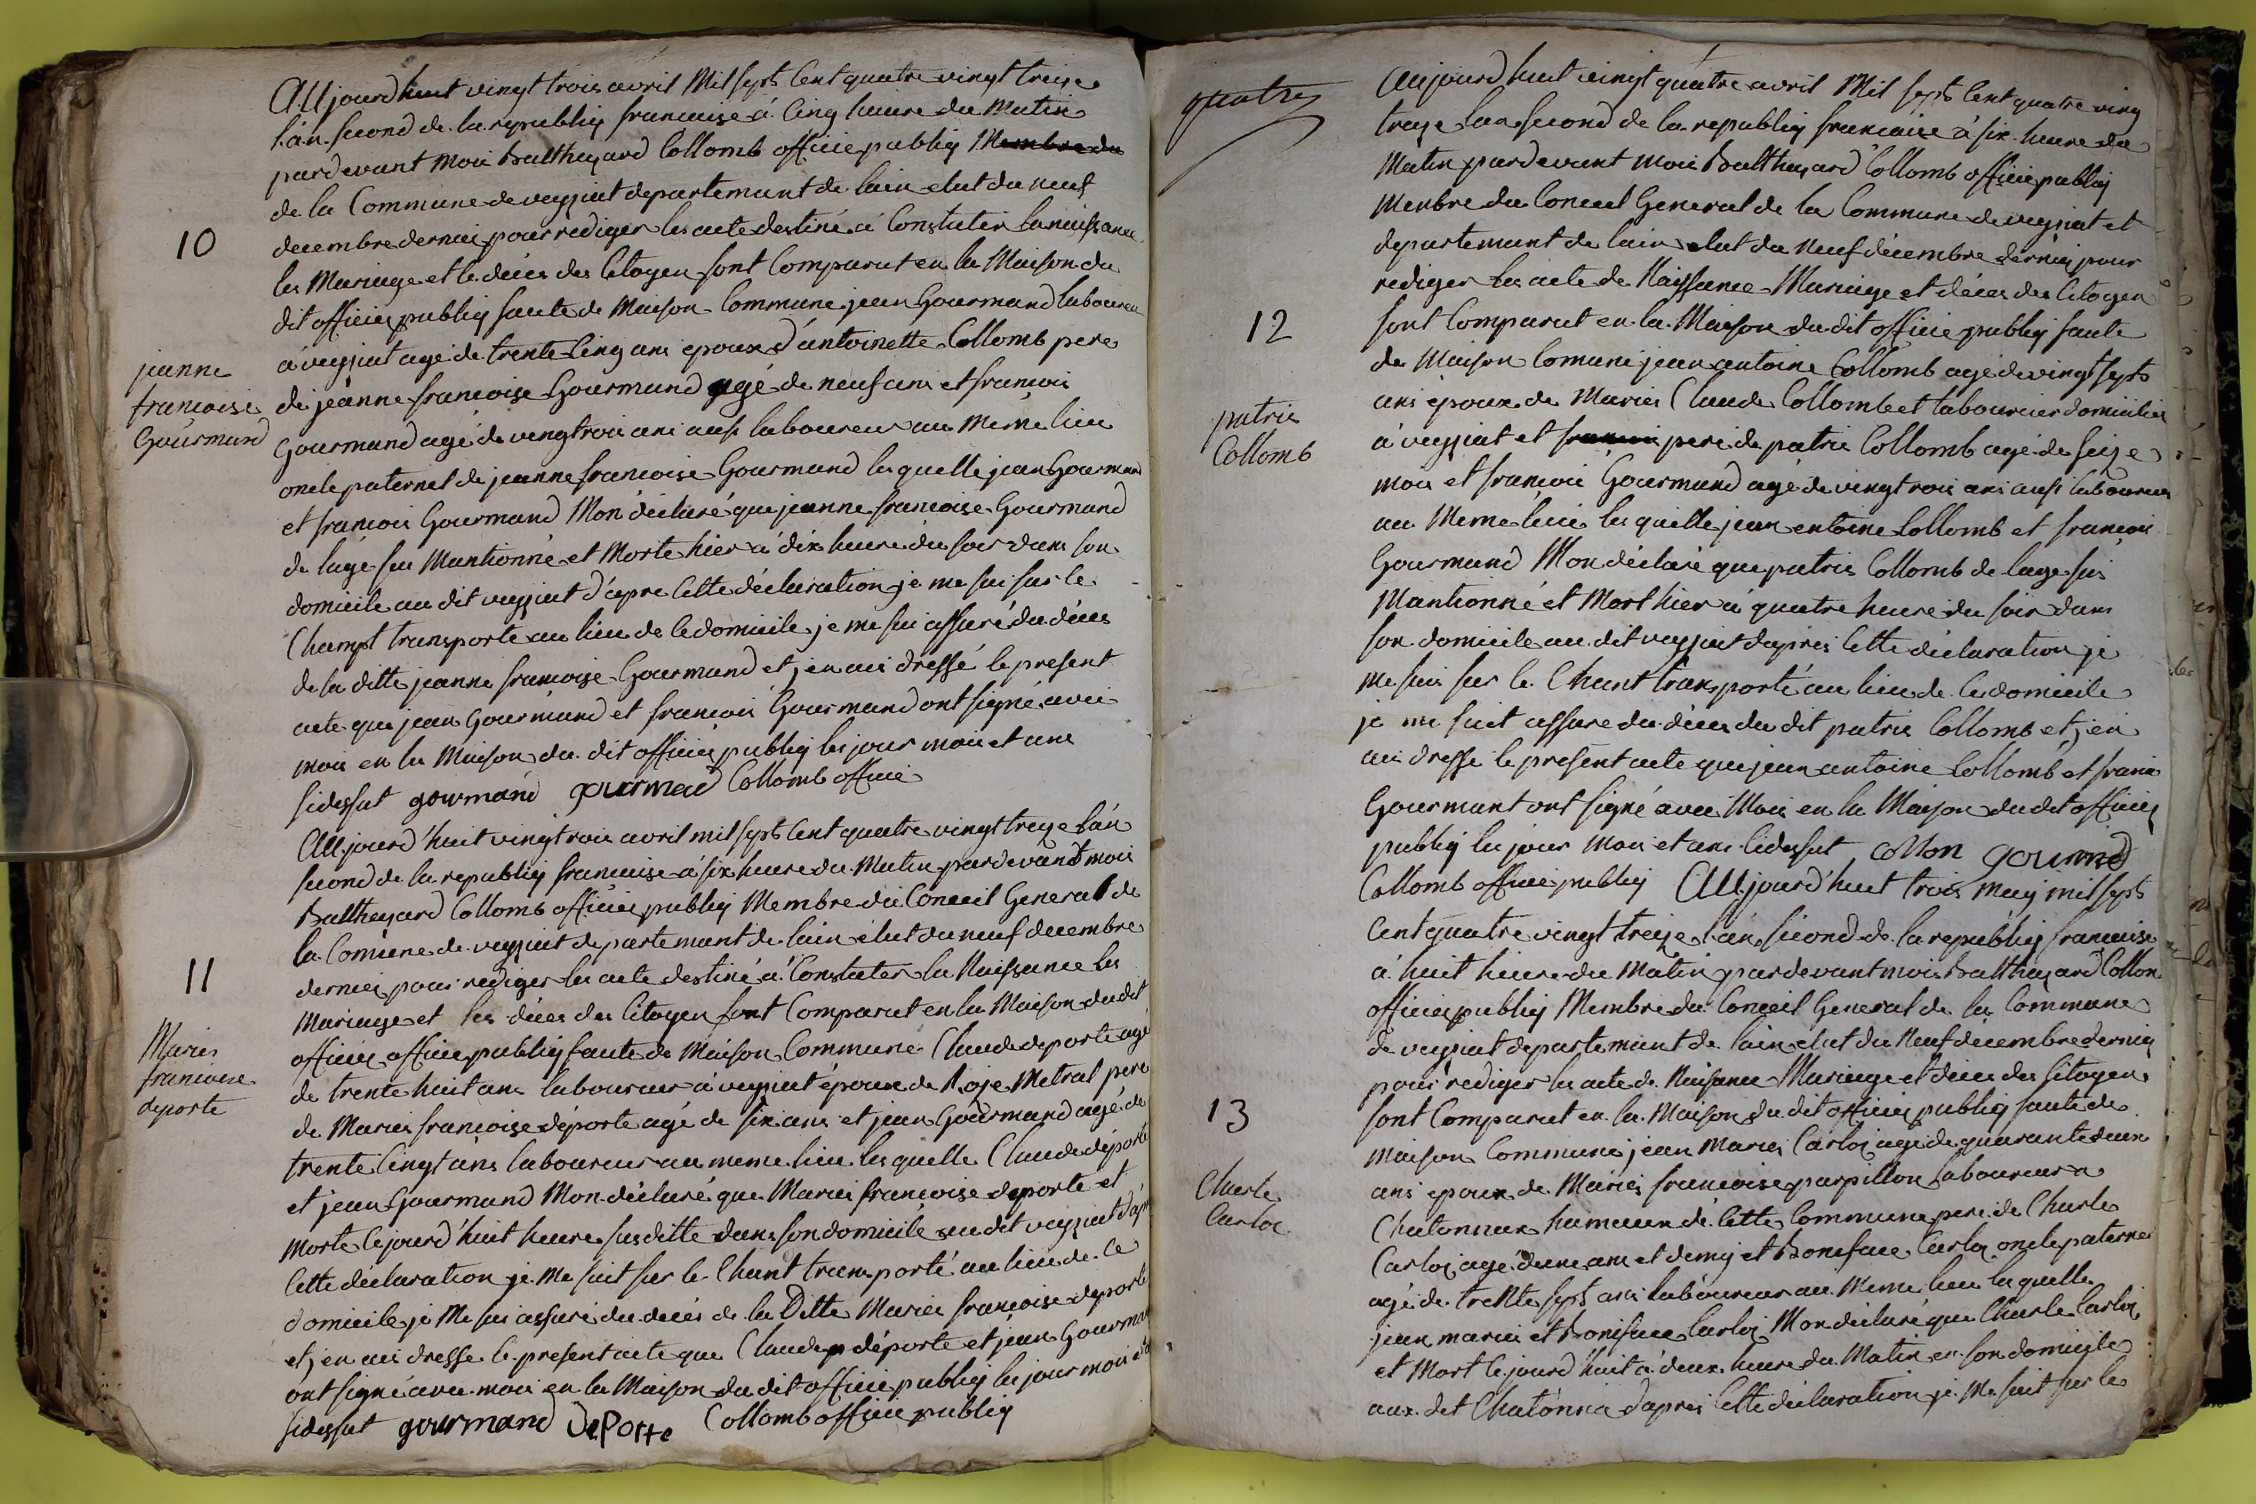 Aujourd huit vingt trois avril Mil sept Cent quatre vingt treize
lan second de la republiq francaise à Cinq heure du Matin
pardevant moi Balthazard Collomb officie publiq Membre du
de la Commune de veyziat departemant de lain elut du neuf
decembre dernier pour rediger les acte destiné a Constater la naissance
les Mariage et le déces des Citoyen sont Comparut en la Maison du
dit officier publiq faute de Maison Commune jean Gourmand laboureur
10
a veyziat agé de trente Cinq ans epoux d'antoinette Collomb pere
jeanne
francoise
Gourmand
de jeanne francoise Gourmand agé de neuf ans et francois
Gourmand agé de vingt trois ans ausi laboureur au Meme lieu
oncle paternel de jeanne francoise Gourmand les quelle jean Gourmand
et francois Gourmand Mon déclaré que jeanne francoise Gourmand
de lagé sus Mantionné et Morte hier a dix heure du soir dans son
domicile au dit veyziat d'apre Cette déclaration je me sui sur le
Champt transporte au lieu de Ce domicile je me sui assuré du déces
de la ditte jeanne francoise Gourmand et j en ai dressé le present
acte que jean Gourmand et francois Gourmand ont signé avec
moi en la Maison du dit officier publiq les jour mois et ans
sidessut gourmand gourmad Collomb officie
Aujourd'huit vingt rois avril mil sept Cent quatre vingt treze lán
second de la republiq francaise a six heure du Matin pardevant moi
Balthazard Collomb officier publiq Membre du Conceil General de
la Comune de veyziat departemant de lain élut du neuf decembre
11
dernier pour rediger les acte destiné a Constater la Naissance les
Mariage et les déces des Citoyen sont Comparut en la Maison du dit
Marie
francoise
deporte
officier officie publiq faute de Maison Commune Claude deporte agé
de trente huit ans laboureur a veyziat époux de Roze Metral pere
de Marie francoise déporte agé de six ans et jean Gourmand agé de
trente Cingt ans laboureur au meme lieu les quelle Claude déporte
et jean Gourmand Mon déclaré que Marie francoise deporte et
Morte Cejourd'huit heure susditte dans son domicile au dit veyziat d'apre
Cette déclaration je Me suit sur le Chant transporté au lieu de Ce
domicile je Me sui assuré du deces de la Ditte Marie francoise deporte
et j en ai dresse le present acte que Claude déporte et jean Gourman
ont signé avec moi en la Maison du dit officie publiq les jour mois et
sidessut gourmand DePorte Collomb officie publiq
quatre
Aujourd huit vingt quatre avril Mil sept Cent quatre ving
treze lan second de la republiq francaise à six heure du
Matin pardevant moi Balthazard Collomb officie publiq
Menbre du Conceil General de la Commune de veyziat et
departemant de lain elut du Neuf décembre dérnier pour
rediger les acte de Naissance Mariage et déces des Citoyen
12
sont Comparut en la Maison du dit officie publiq faute
de Maison Comune jean antoine Collomb agé de vingt sept
ans époux de Marie Claude Collomb et laboureur domicilié
patris
Collomb
à veyziat et francois pere de patris Collomb agé de seize
mois et francois Gourmand agé de vingt rois ans ausi laboureur
au Meme lieu les quelle jean entoine Collomb et francois
Gourmand Mon déclaré que patris Collomb de lage sus
Mantionné et Mort hier à quatre heure du soir dans
son domicile au dit veyziat dapres Cette déclaration je
me suis sur le Chant transporté au lieu de Ce domicile
je me suit assure du déces du dit patris Collomb et j en
ai dresse le present acte que jean antoine Collomb et francs
Gourmant ont signé avec Moi en la Maison du dit officie
publiq les jour mois et ans Cidessut collon gourmd
Collomb officie publiq Aujourd'huit trois may mil sept
Cent quatre vingt treize lán second de la republiq francaise
à huit heure du Matin pardevant mois Balthazard Collon
officie publiq Membre du Conceil General de la Commune
de veyziat departemant de lain elut du Neuf décembre dernier
pour rediger les acte de Naisance Mariage et déces des Citoyen
13
sont Comparut en la Maison du dit officie publiq faute de
maison Commune jean Marie Carloz agé de quarante deux
Charle
Carloz
ans epoux de Marie francoise parpillon laboureur a
Chatonnax hameaux de Cette Commune pere de Charle
Carloz agé dune ans et demy et Boniface Carloz oncle paternel
agé de trente sept ans laboureur au Meme lieu les quelle
jean marie et Boniface Carloz Mon déclaré que Charle Carloz
et Mort Cejourd'huit a deux heure du Matin en son domicile
aux dit Chatonna dapres Cette déclaration je Me suit sur le